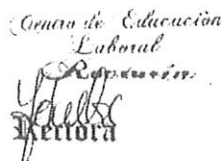 Centro de Educación
Laboral
Rectora